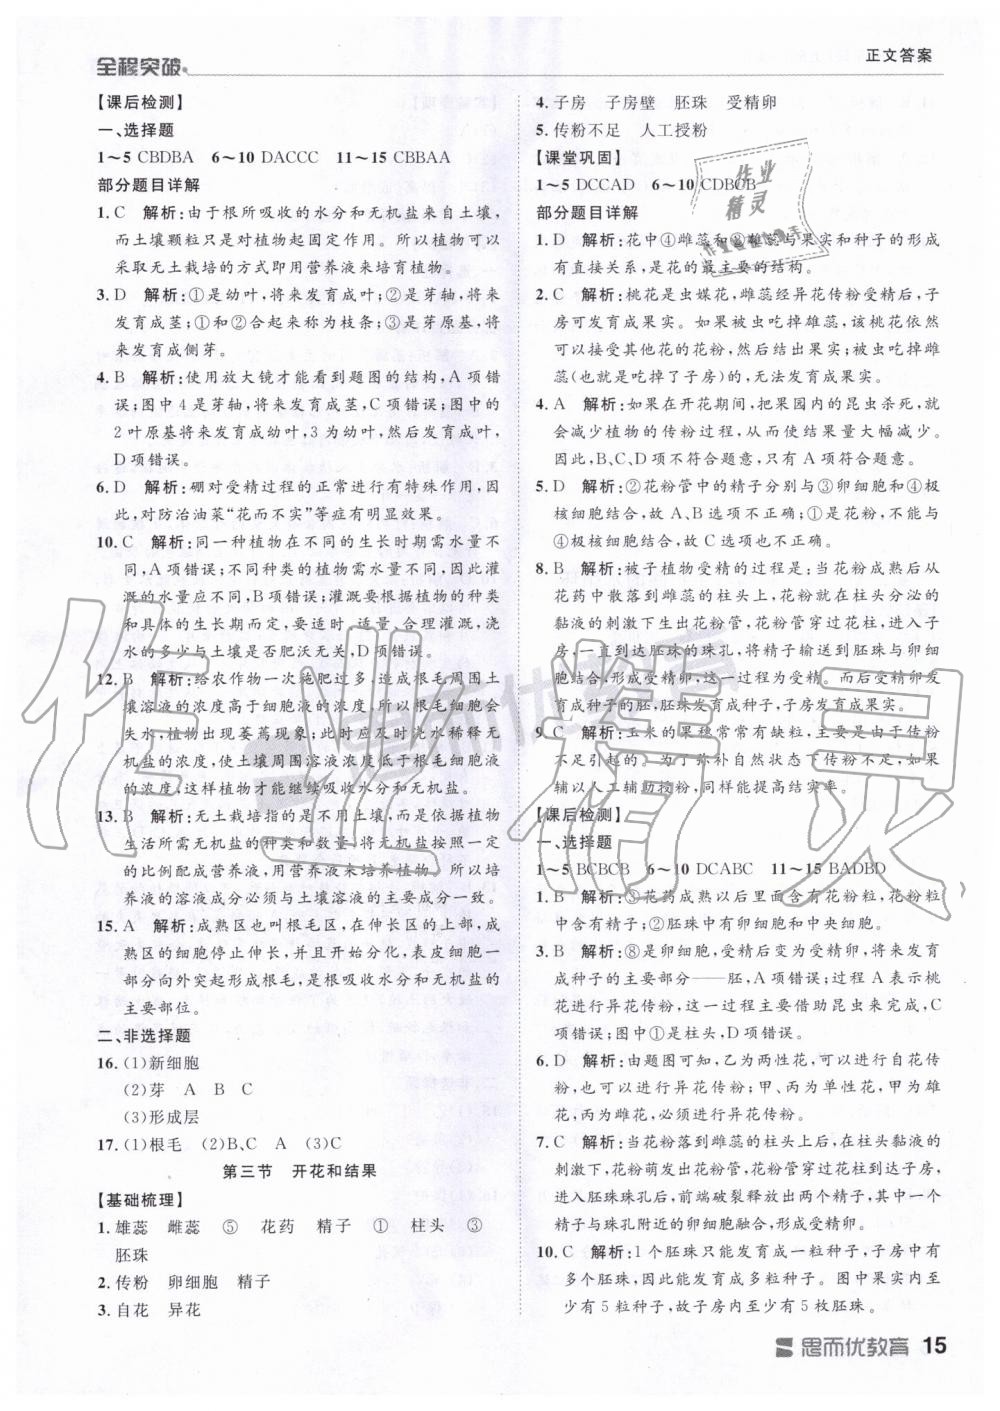 全程突破
正文答案
【课后检测】
一、选择题
1～5 CBDBA　6～10 DACCC　11～15 CBBAA
部分题目详解
1. C　解析:由于根所吸收的水分和无机盐来自土壤,
而土壤颗粒只是对植物起固定作用。所以植物可以
采取无土栽培的方式即用营养液来培育植物。
3. D　解析:①是幼叶,将来发育成叶;②是芽轴,将来
发育成茎;①和②合起来称为枝条;③是芽原基,将
来发育成侧芽。
4. B　解析:使用放大镜才能看到题图的结构,A项错
误;图中4是芽轴,将来发育成茎,C项错误;图中的
2叶原基将来发育成幼叶,3为幼叶,然后发育成叶,
D项错误。
6. D　解析:硼对受精过程的正常进行有特殊作用,因
此,对防治油菜“花而不实”等症有明显效果。
10. C　解析:同一种植物在不同的生长时期需水量不
同,A项错误;不同种类的植物需水量不同,因此灌
溉的水量应不同,B项错误;灌溉要根据植物的种类
和具体的生长期而定,要适时、适量、合理灌溉,浇
水的多少与土壤是否肥沃无关,D项错误。
12. B　解析:给农作物一次施肥过多,造成根毛周围土
壤溶液的浓度高于细胞液的浓度,所以根毛细胞会
失水,植物出现萎蔫现象;此时应及时浇水稀释无
机盐的浓度,使土壤周围溶液浓度低于根毛细胞液
的浓度,这样植物才能继续吸收水分和无机盐。
13. B　解析:无土栽培指的是不用土壤,而是依据植物
生活所需无机盐的种类和数量,将无机盐按照一定
的比例配成营养液,用营养液来培养植物。所以培
养液的溶液成分必须与土壤溶液的主要成分一致。
15. A　解析:成熟区也叫根毛区,在伸长区的上部,成
熟区的细胞停止伸长,并且开始分化,表皮细胞一
部分向外突起形成根毛,是根吸收水分和无机盐的
主要部位。
二、非选择题
16. (1)新细胞
(2)芽　A　B　C
(3)形成层
17. (1)根毛　(2)B、C　A　(3)C
第三节　开花和结果
【基础梳理】
1. 雄蕊　雌蕊　⑤　花药　精子　①　柱头　③
胚珠
2. 传粉　卵细胞　精子
3. 自花　异花
4. 子房　子房壁　胚珠　受精卵
5. 传粉不足　人工授粉
【课堂巩固】
1～5 DCCAD　6～10 CDBCB
部分题目详解
1. D　解析:花中④雌蕊和②雄蕊与果实和种子的形成
有直接关系,是花的最主要的结构。
2. C　解析:桃花是虫媒花,雌蕊经异花传粉受精后,子
房可发育成果实。如果被虫吃掉雄蕊,该桃花依然
可以接受其他花的花粉,然后结出果实;被虫吃掉雌
蕊(也就是吃掉了子房)的,无法发育成果实。
4. A　解析:如果在开花期间,把果园内的昆虫杀死,就
会减少植物的传粉过程,从而使结果量大幅减少。
因此,B、C、D项不符合题意,只有A项符合题意。
5. D　解析:②花粉管中的精子分别与③卵细胞和④极
核细胞结合,故A、B选项不正确;①是花粉,不能与
④极核细胞结合,故C选项不正确。
8. B　解析:被子植物受精的过程是:当花粉成熟后,从
花药中散落到雌蕊的柱头上,花粉就在柱头分泌的
黏液的刺激下生出花粉管,花粉管穿过花柱,进入子
房,一直到达胚珠的珠孔,将精子输送到胚珠与卵细
胞结合,形成受精卵,这就是受精。而后受精卵发
育成种子的胚,胚珠发育成种子,子房发育成果实。
9. C　解析:玉米的果穗常常有缺粒,主要是由于传粉
不足引起的。为了弥补自然状态下传粉不足,如果
辅以人工辅助授粉,同样能提高结实率。
【课后检测】
一、选择题
1～5 BCBCB　6～10 DCABC　11～15 BADBD
1. B　解析:③花药成熟以后里面含有花粉粒,花粉粒
中含有精子;②胚珠中有卵细胞和中央细胞。
3. B　解析:⑧是卵细胞,受精后变为受精卵,将来发育
成种子的主要部分——胚,A项错误;过程A表示桃
花进行异花传粉,这一过程主要借助昆虫来完成,C
项错误;图中①是柱头,D项错误。
6. D　解析:由题图可知,乙为两性花,可以进行自花传
粉,也可以进行异花传粉;甲、丙为单性花,甲为雄
花,丙为雌花,必须进行异花传粉。
7. C　解析:当花粉落到雌蕊的柱头上后,在柱头黏液的
刺激下,花粉萌发出花粉管,花粉管穿过花柱到达子房,
进入胚珠珠孔后,前端破裂释放出精子,其中一个
精子与珠孔附近的卵细胞融合,形成受精卵。
10. C　解析:1个胚珠只能发育成一粒种子,子房中有
多个胚珠,因此能发育成多粒种子。图中果实内至
少有5粒种子,故子房内至少有5枚胚珠。
作业
精灵
作业精灵
思而优教育
思而优教育 15